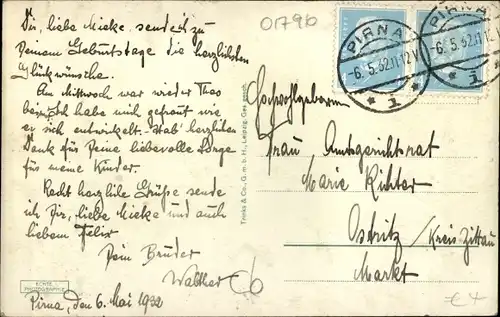 01796
Dir, liebe Mieke sendet zu
Deinem Geburtstage die herzlichsten
Glückwünsche.
Am Mittwoch war wieder Theo
Ich habe mich gefreut wie
er sich entwickelt. Hab' herzlichen
Dank für Deine liebevolle Sorge
für meine Kinder.
Recht herzliche Grüße sende
ich Dir, liebe Mieke und auch
liebem Felix
Dein Bruder
Walther
Pirna, den 6. Mai 1932
ECHTE
PHOTOGRAPHIE
Trinks & Co., G.m.b.H., Leipzig. Ges. gesch.
PIRNA
-6.5.32.11-12V
1
PIRNA
-6.5.32.11-12V
1
Hochwohlgeboren
Frau Amtsgerichtsrat
Marie Richter
Ostritz / Kreis Zittau
Markt